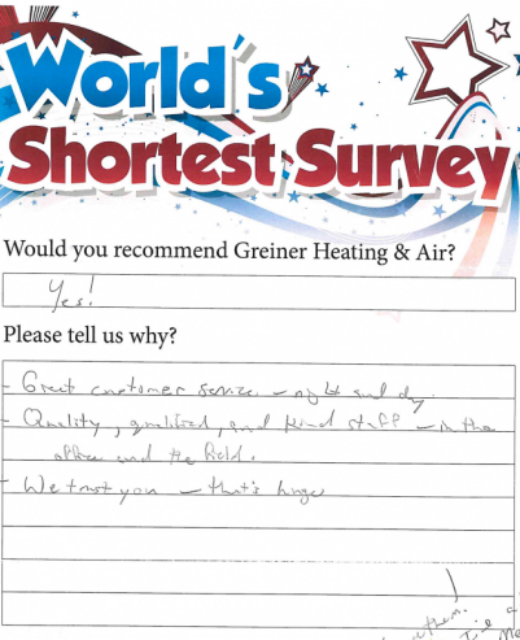 World's
Shortest Survey
Would you recommend Greiner Heating & Air?
Yes!
Please tell us why?
- Great customer service - night and day.
- Quality, qualified, and kind staff - in the
office and the field.
- We trust you - that's huge
them.